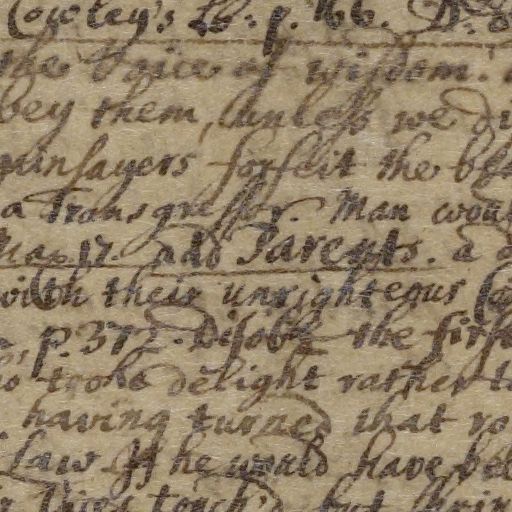 Cowley's p. 166.
the voice of wisdom.
bey them, unless we di
gainsayers forfeit the
a Transgressor. Man wou
Max 17. add Parents. a
with their unrighteous
p. 372. Disobey the first
took delight rather t
having turned that
law If he would have
touch'd but